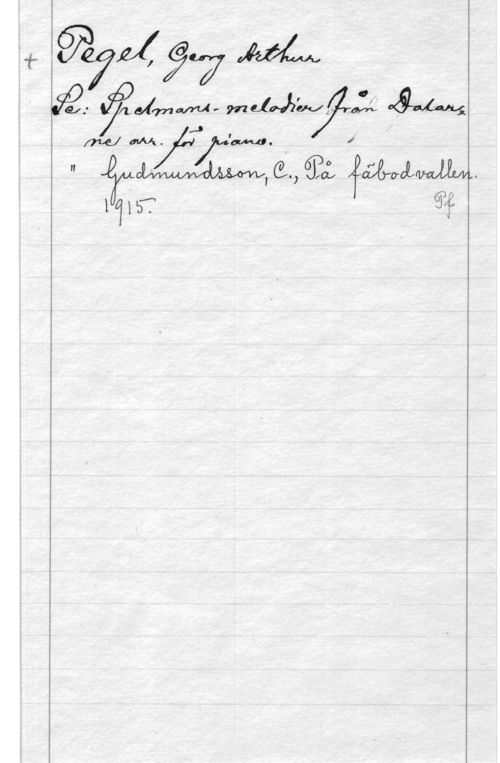 + Pegel, Georg Arthur
Se: Spelmans-melodier från Dalar=
ne arr. för piano.
" Gudmundsson, C., På fäbodvallen.
1915. Pf